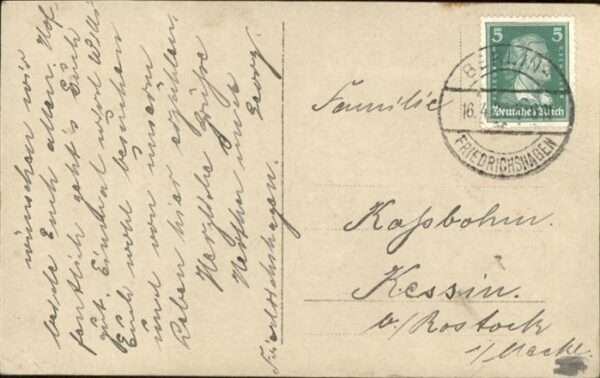 wünschen wir
beide Euch allen. Hof-
fentlich geht's Euch
gut. Einmal wird Willi
Euch wohl besuchen
und von unserm
Leben hier erzählen.
Herzliche Grüße
und
Georg.
Friedrichshagen.
5 5
Deutsches Reich
BERLIN-
16. 4.
FRIEDRICHSHAGEN
Familie
Kaßbohm.
Kessin.
b/Rostock
i/Meckl.